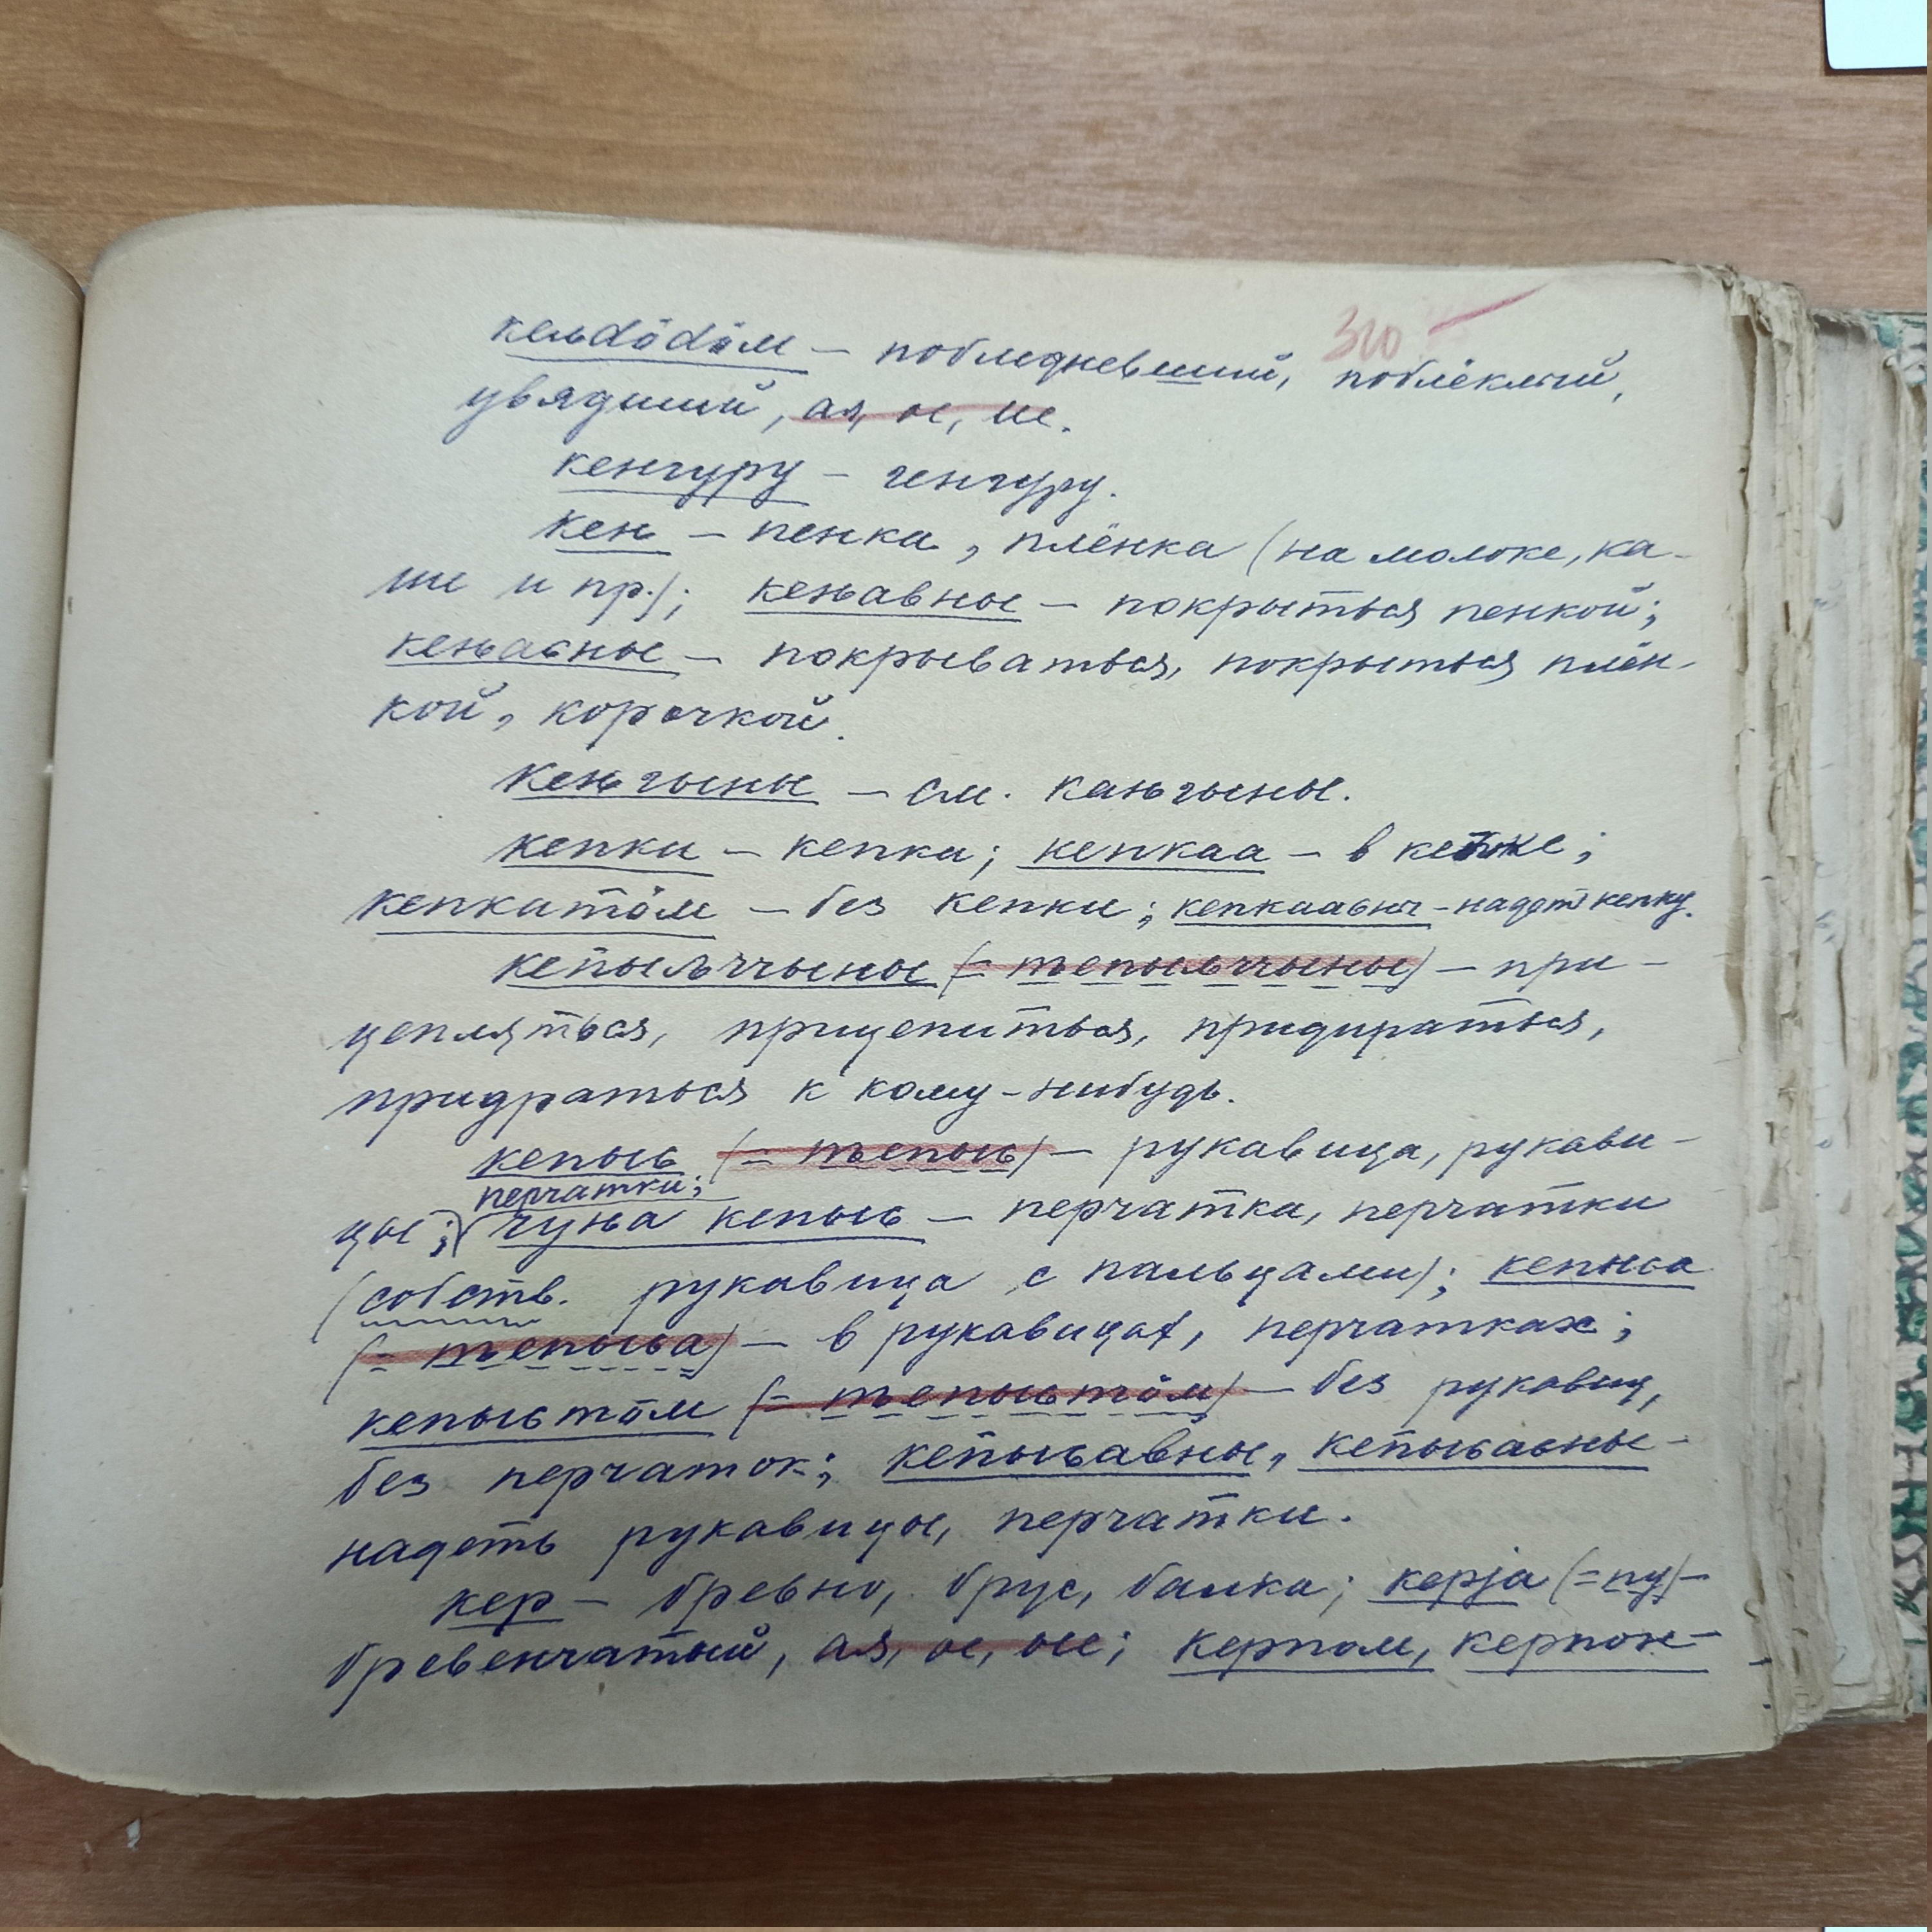 310
кельdӧdӧм – побледневший, поблёклый,
увядший, ая, ое, ие.
кенгуру – генгуру.
кень – пенка, плёнка (на молоке, ка-
ше и пр.); кењавны – покрыться пенкой;
кењаԍны – покрываться, покрыться плён-
кой, корочкой.
кењгыны – см. кањгыны.
кепки – кепки; кепкаа – в кепке;
кепкитӧм – без кепки; кепкааԍны – надеть кепку.
кепыљччыны (= тьепыльччыны) – при-
цепляться, прицепиться, придираться,
придраться к кому-нибудь.
кепыԍ (= тьепыԍ) – рукавица, рукави-
перчатки;
цы; чуња кепыԍ – перчатка, перчатки
(собств. рукавица с пальцами); кепыԍа
(= тьепыԍа) – в рукавицах, перчатках;
кепыԍтӧм (= тьепыԍтӧм) – без рукавиц,
без перчаток; кепыԍавны, кепыԍаԍны –
надеть рукавицы, перчатки.
кер – бревно, брус, балка; керја (= пу) –
бревенчатый, ая, ое, ые; керпом, керпон-